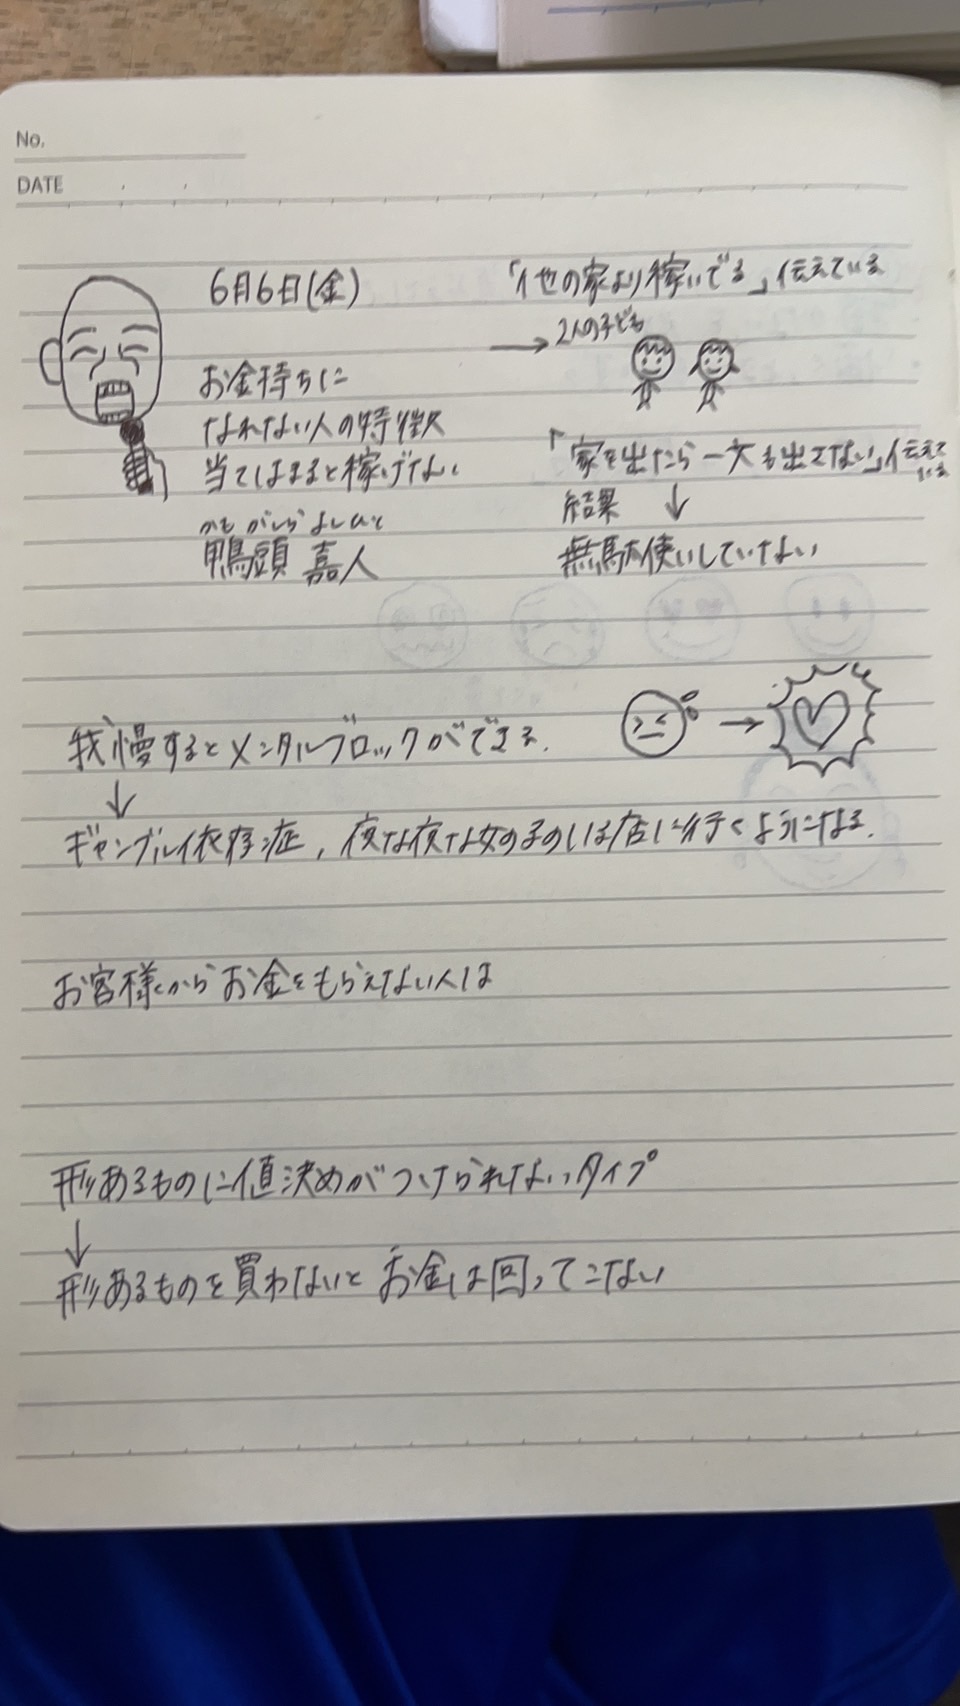 No.
DATE
6月6日(金)
お金持ちに
なれない人の特徴
当てはまると稼げない
かもがしら よしひと
鴨頭 嘉人
「他の家より稼いでる」伝えている
→ 2人の子ども
「家を出たら一文も出さない」伝えて
いる
結果 ↓
無駄使いしていない
我慢するとメンタルブロックができる. →
↓
ギャンブル依存症, 夜な夜な女の子のいる店に行くようになる.
お客様からお金をもらえない人は
形あるものに値決めがつけられないタイプ
↓
形あるものを買わないとお金は回ってこない